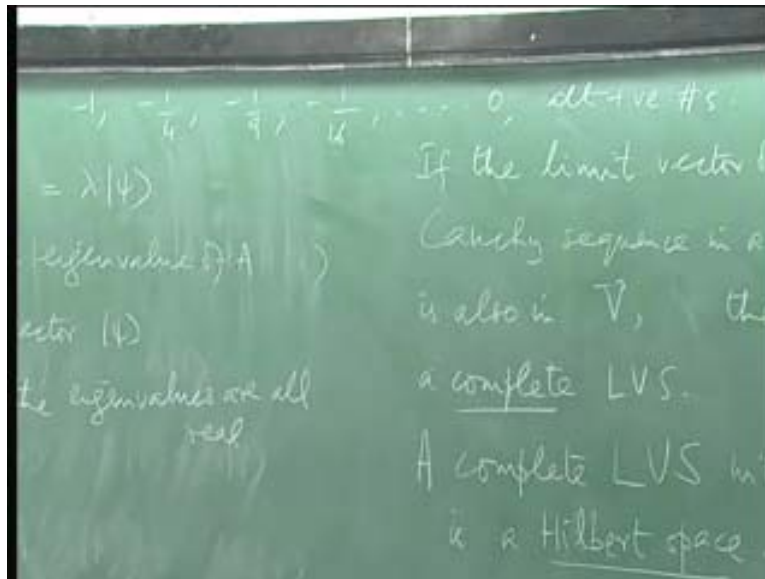 -1, -1/4, -1/9, -1/16, .... 0, all +ve #s.
= λ|ψ⟩
eigenvalue of A )
ector |ψ⟩
the eigenvalues are all
real
If the limit vector
Cauchy sequence in a
is also in V,
a complete LVS.
A complete LVS
is a Hilbert space.